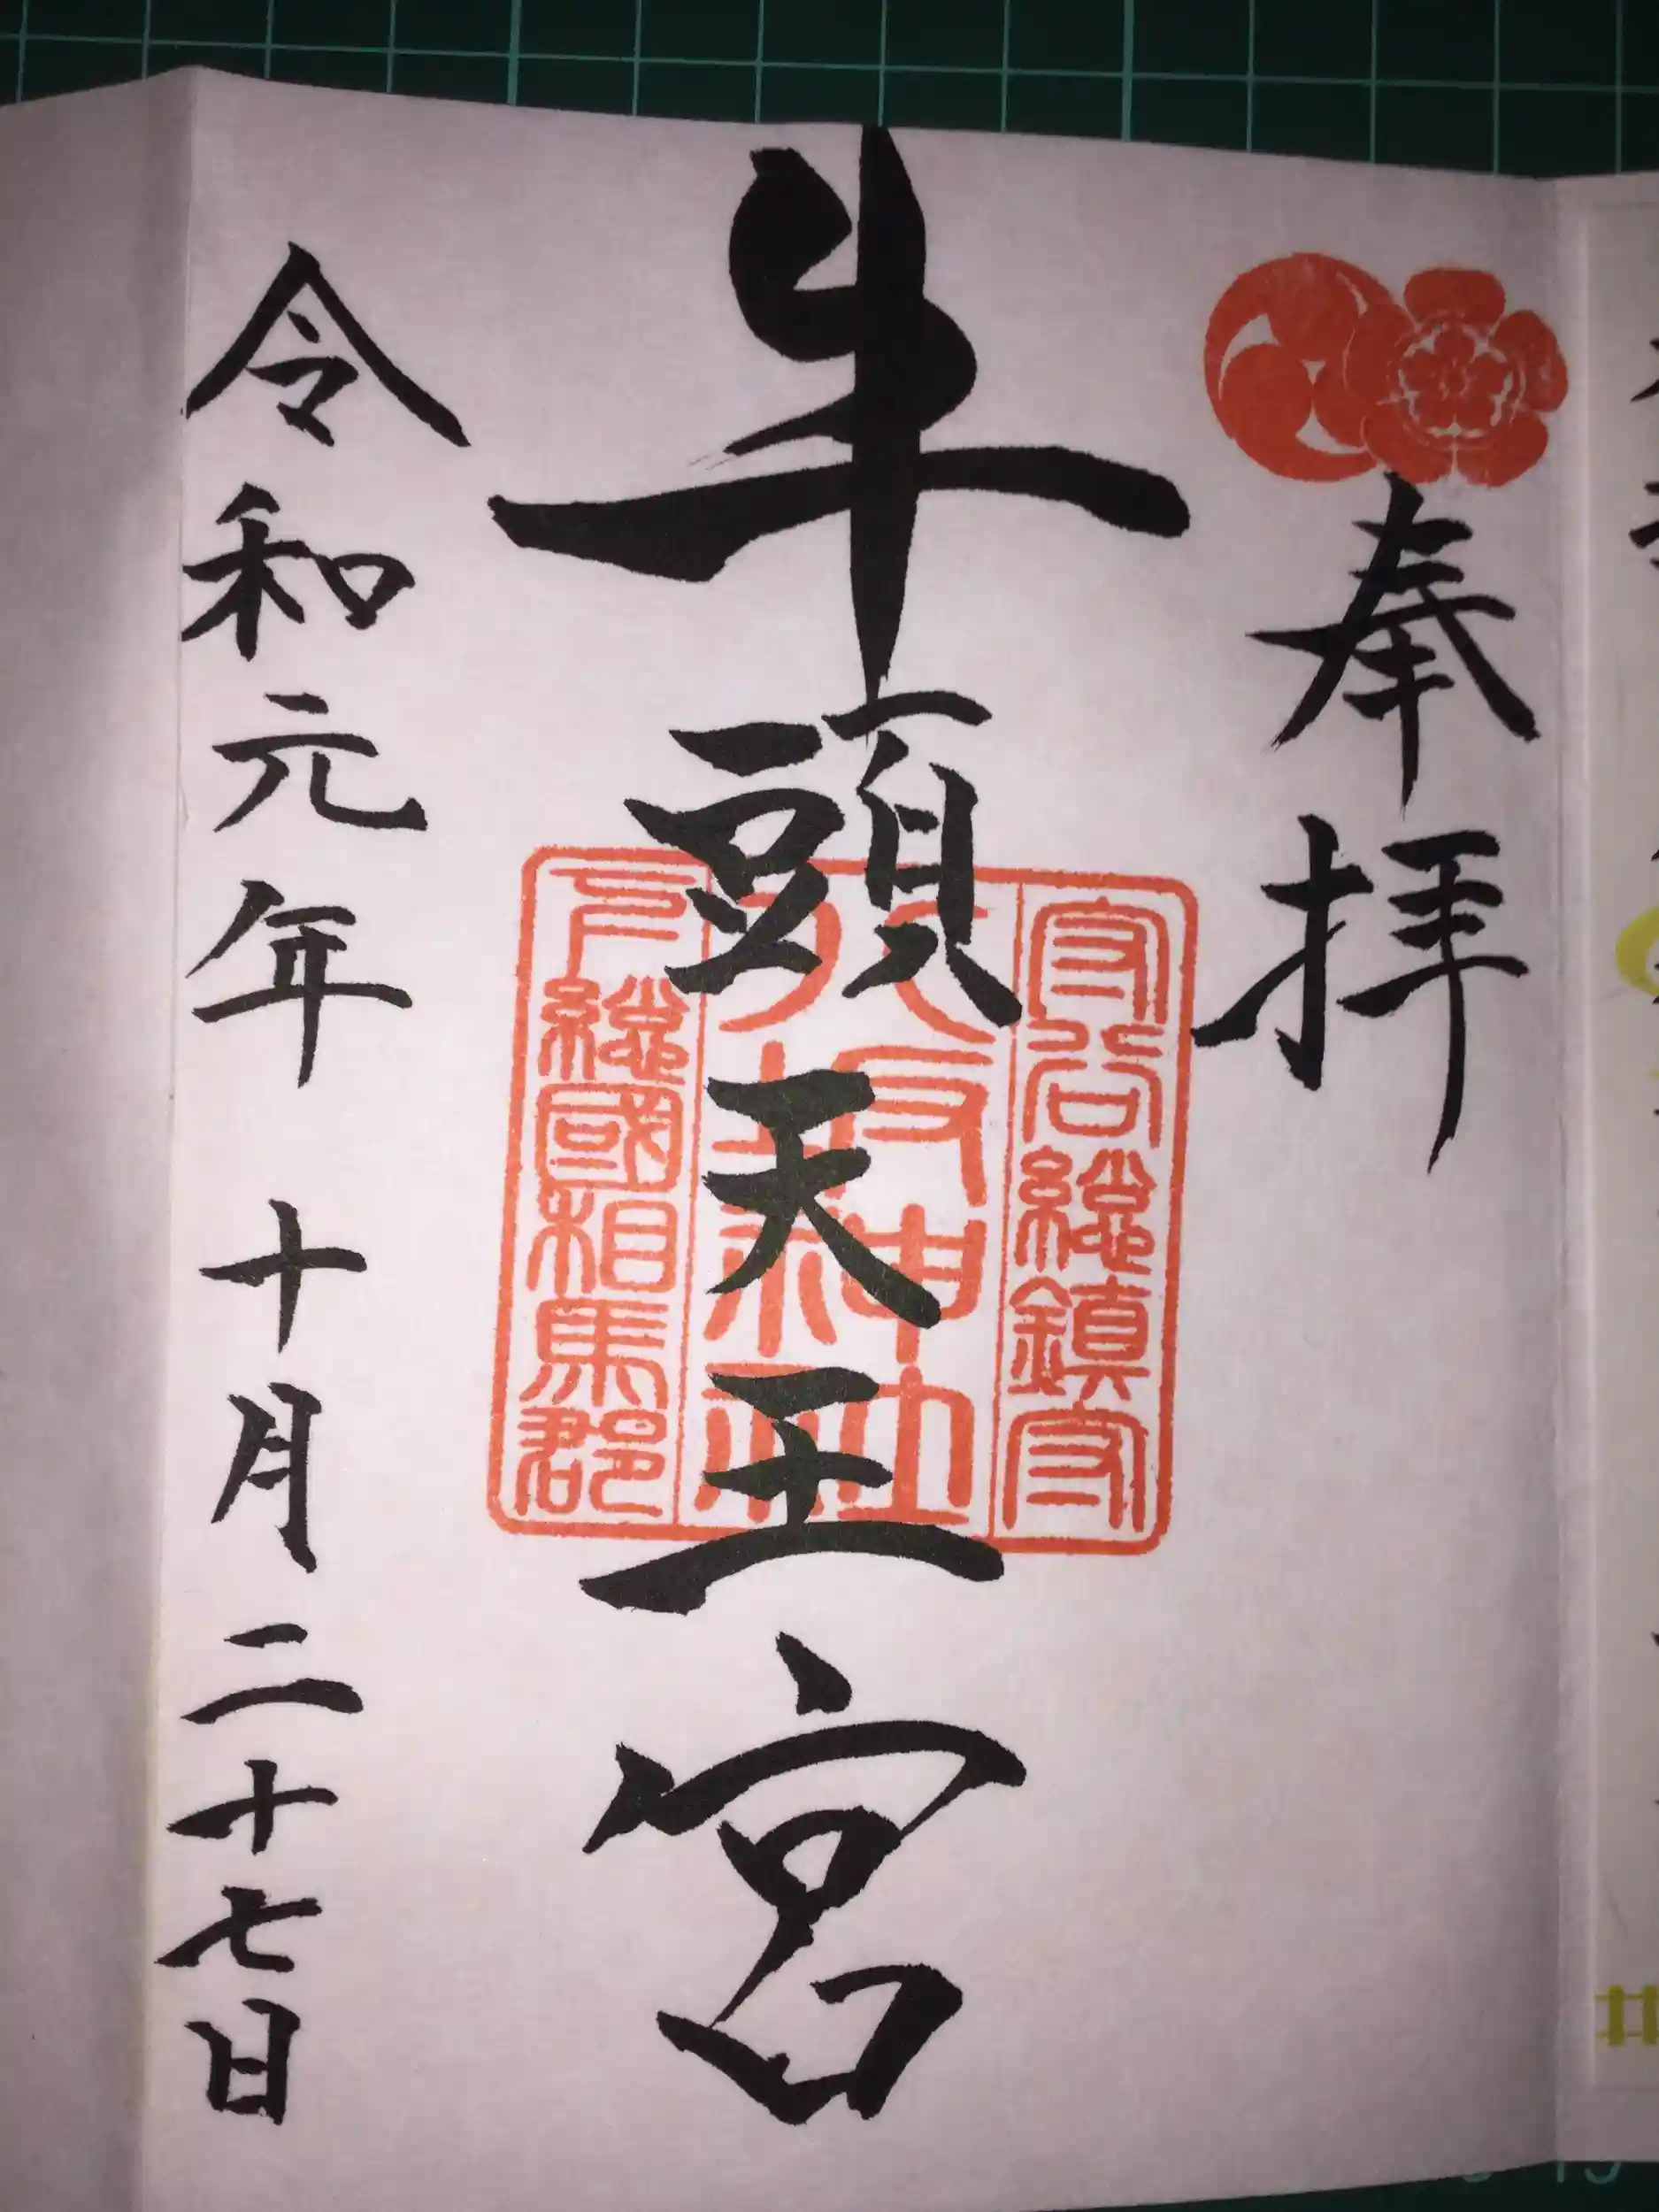 奉拝
牛頭天王宮
守谷總鎮守
八坂神社
下總國相馬郡
令和元年 十月 二十七日